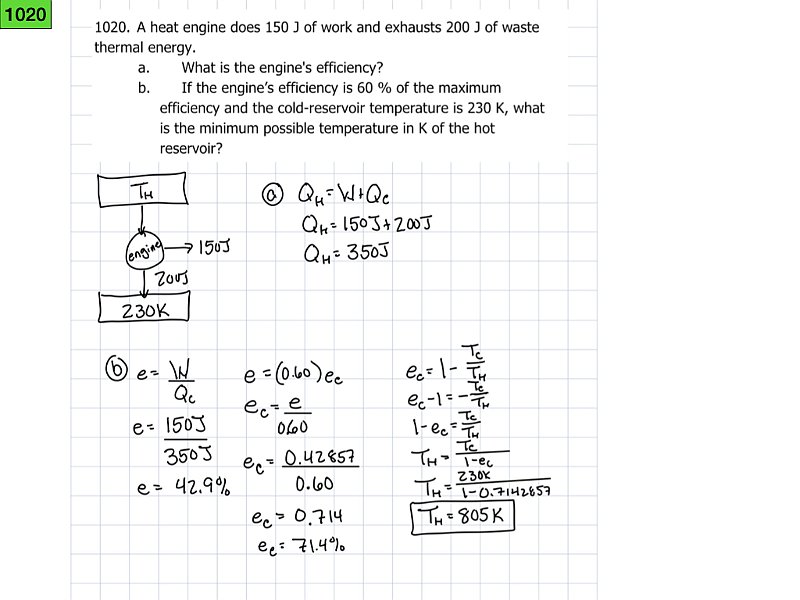 1020
1020. A heat engine does 150 J of work and exhausts 200 J of waste
thermal energy.
a. What is the engine's efficiency?
b. If the engine's efficiency is 60 % of the maximum
efficiency and the cold-reservoir temperature is 230 K, what
is the minimum possible temperature in K of the hot
reservoir?
T_H
engine → 150J
200J
230K
ⓐ Q_H = W + Q_C
Q_H = 150J + 200J
Q_H = 350J
ⓑ e = W/Q_C
e = 150J/350J
e = 42.9%
e = (0.60) e_C
e_C = e/0.60
e_C = 0.42857/0.60
e_C = 0.714
e_C = 71.4%
e_C = 1 - T_C/T_H
e_C - 1 = - T_C/T_H
1 - e_C = T_C/T_H
T_H = T_C/1-e_C
T_H = 230K/1-0.7142857
T_H = 805 K